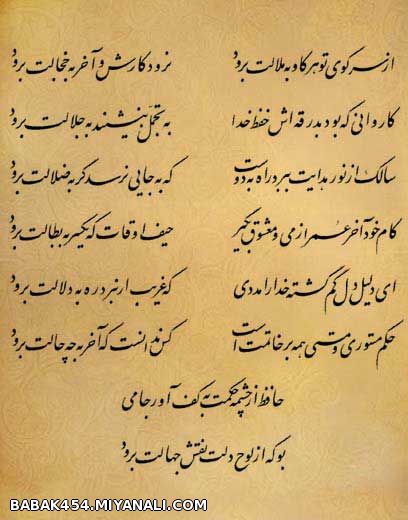 از سر کوی تو هر کاو به ملالت برود نرود کارش و آخر به خجالت برود
کاروانی که بود بدرقه اش حفظ خدا به تجمّل بنشیند به جلالت برود
سالک از نور هدایت ببرد راه به دوست که به جایی نرسد گر به ضلالت برود
کام خود آخر عمر از می و معشوق بگیر حیف اوقات که یکسر به بطالت برود
ای دلیل دل گم گشته خدا را مددی که غریب ار نبرد ره به دلالت برود
حکم مستوری و مستی همه بر خاتمت است کس ندانست که آخر به چه حالت برود
حافظ از چشمه حکمت به کف آور جامی
بو که از لوح دلت نقش جهالت برود
BABAK454.MIYANALI.COM